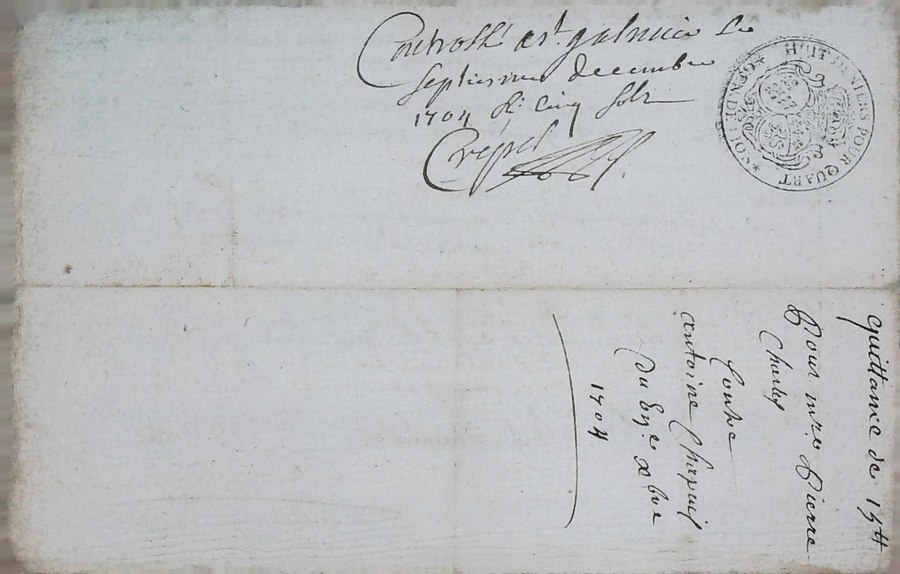 Controllé a St. galmier Le
septiesme decembre
1704 Rt. Cinq sols
Crépet
HUIT DENIERS POUR QUART
quittance de 15tt
Pour mre. Pierre
Charles
Contre
antoine Chapuis
Du 6me xbre
1704